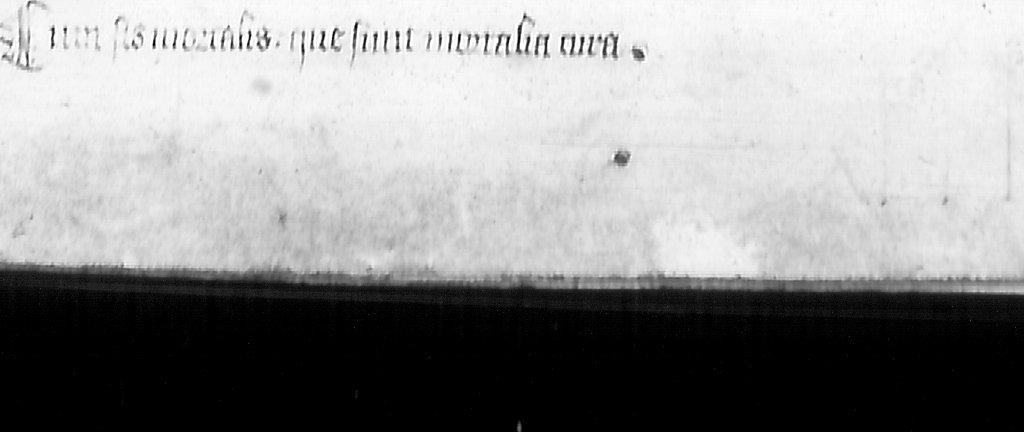 Cum sis mortalis. que sunt mortalia cura.